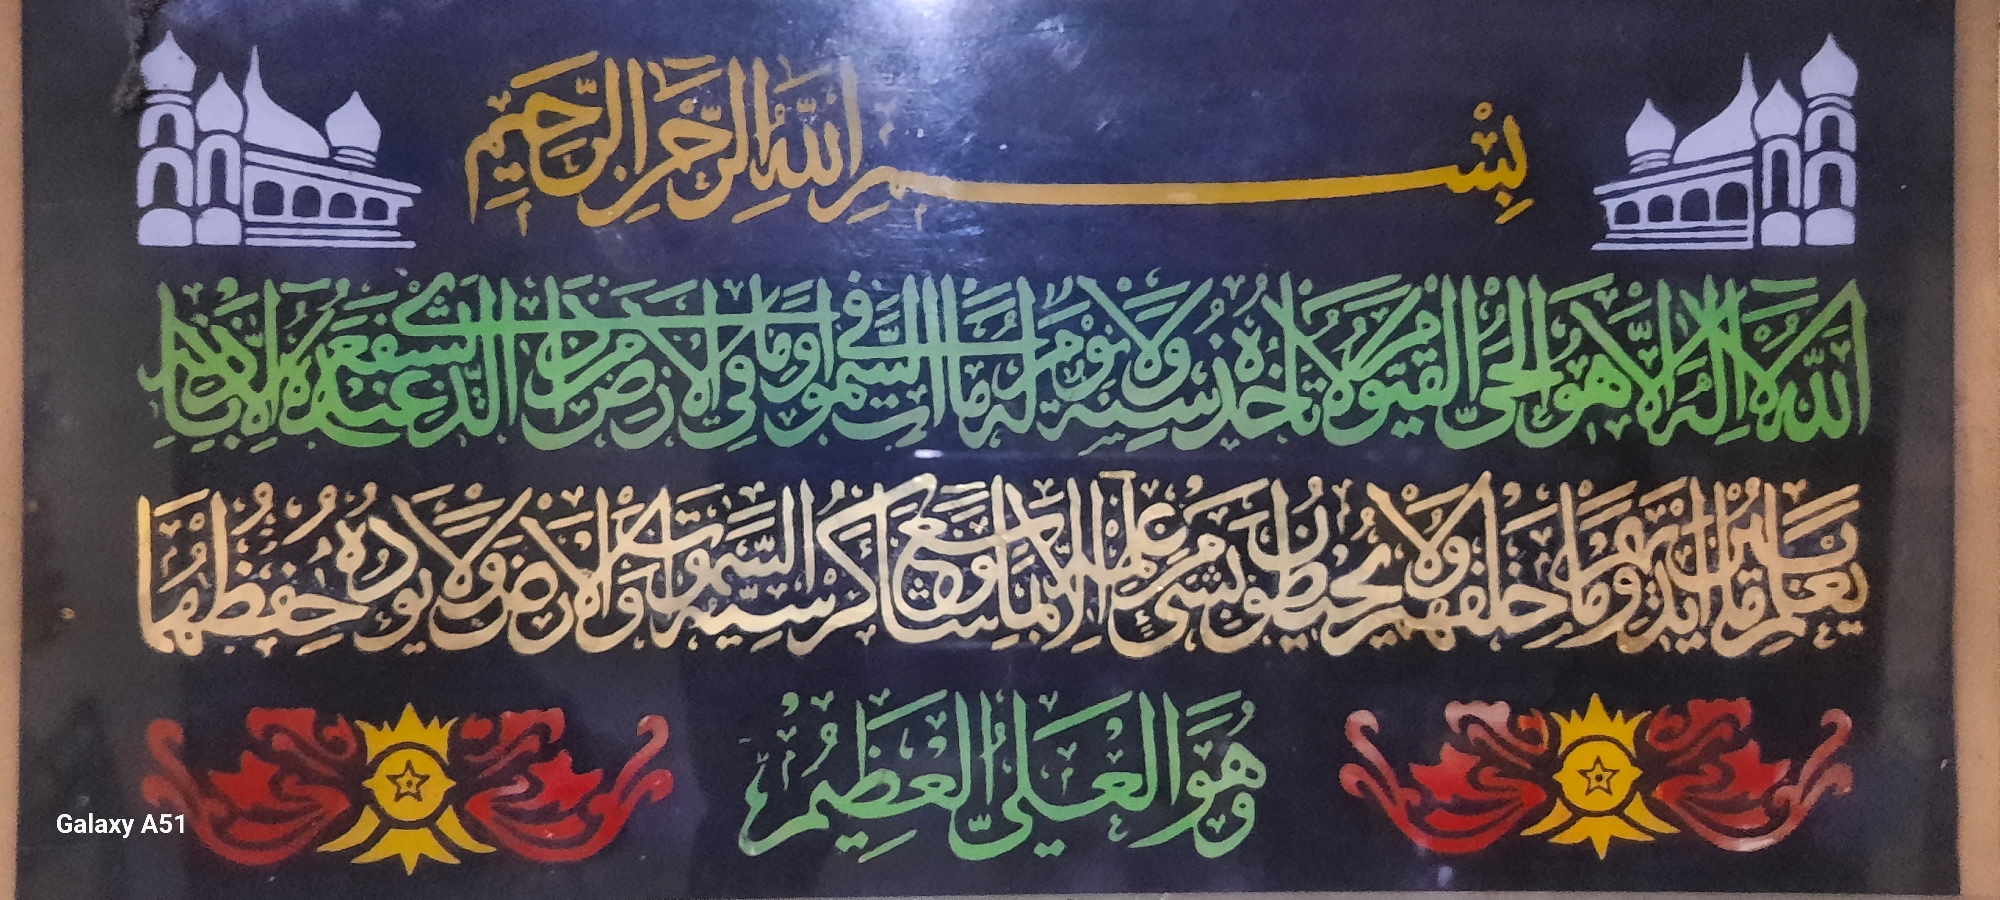 بِسْمِ اللَّهِ الرَّحْمَٰنِ الرَّحِيمِ
اللَّهُ لَا إِلَٰهَ إِلَّا هُوَ الْحَيُّ الْقَيُّومُ لَا تَأْخُذُهُ سِنَةٌ وَلَا نَوْمٌ لَهُ مَا فِي السَّمَٰوَاتِ وَمَا فِي الْأَرْضِ مَنْ ذَا الَّذِي يَشْفَعُ عِنْدَهُ إِلَّا بِإِذْنِهِ
يَعْلَمُ مَا بَيْنَ أَيْدِيهِمْ وَمَا خَلْفَهُمْ وَلَا يُحِيطُونَ بِشَيْءٍ مِنْ عِلْمِهِ إِلَّا بِمَا شَاءَ وَسِعَ كُرْسِيُّهُ السَّمَٰوَاتِ وَالْأَرْضَ وَلَا يَئُودُهُ حِفْظُهُمَا
وَهُوَ الْعَلِيُّ الْعَظِيمُ
Galaxy A51